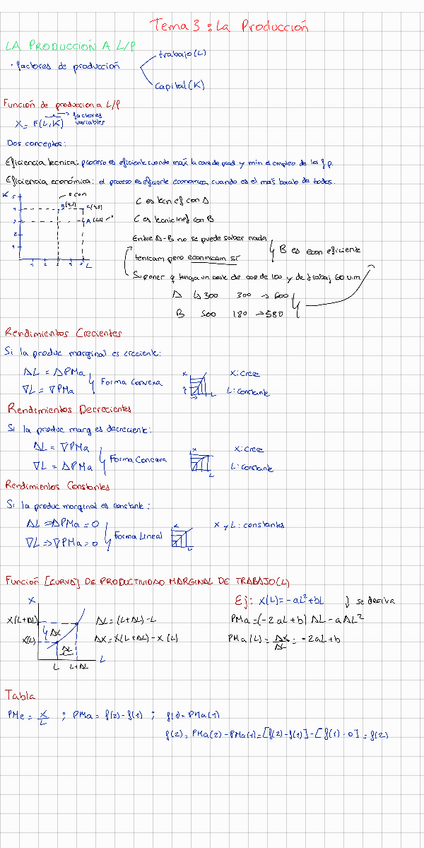 Tema 3: La Producción
LA PRODUCCIÓN A L/P
· factores de producción
trabajo (L)
capital (K)
Función de produccion a L/P
X = F(L,K) → factores variables
Dos conceptos:
Eficiencia tecnica: proceso es eficiente cuando max la de prod y min el empleo de los f.p.
Eficiencia económica: el proceso es eficiente economica cuando es el mas barato de todos.
C es con A
C es con B
Entre A-B no se puede saber nada
tecnicam pero economicam sí
B es econ eficiente
Suponer q tenga un coste de de 100 y de trabaj 60 u.m
A 300 300 → 600
B 500 180 → 580
Rendimientos Crecientes
Si la produc marginal es creciente:
ΔL = ΔPMa
∇L = ∇PMa
Forma Convexa
X: crece
L: constante
Rendimientos Decrecientes
Si la produc marg es decrecient:
ΔL = ∇PMa
∇L = ΔPMa
Forma Concava
X: crece
L: constante
Rendimientos Constantes
Si la produc marginal es constante:
ΔL ⇒ ΔPMa = 0
∇L ⇒ ∇PMa = 0
Forma Lineal
X y L: constantes
Función [CURVA] DE PRODUCTIVIDAD MARGINAL DE TRABAJO (L)
X
X(L+ΔL)
X(L)
ΔX
ΔL
L L+ΔL L
ΔL = (L+ΔL) - L
ΔX = X(L+ΔL) - X(L)
Ej: X(L) = -aL² + bL ↓ se deriva
PMa = (-2aL+b) ΔL - aΔL²
PMa(L) = ΔX/ΔL = -2aL+b
Tabla
PMe = X/L ; PMa = f(2)-f(1) ; f(1) = PMa(1)
f(2) = PMa(2) - PMa(1) = [f(2)-f(1)] - [f(1)-0] = f(2)